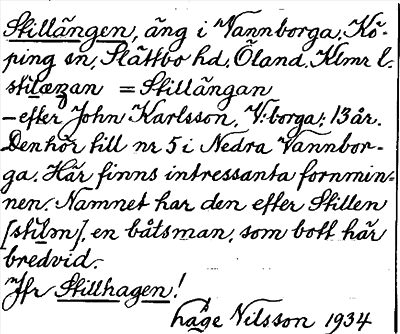 Stillängen, äng i Vannborga, Kö-
ping sn, Slättbo hd, Öland. Klmr l.
stilæŋan = Stillängan
– efter John Karlsson, V:borga; 13 år.
Den hör till nr 5 i Nedra Vannbor-
ga. Här finns intressanta fornmin-
nen. Namnet har den efter Stillen
[stilm], en båtsman, som bott här
bredvid.
Jfr Stillhagen!
håge Nilsson 1934